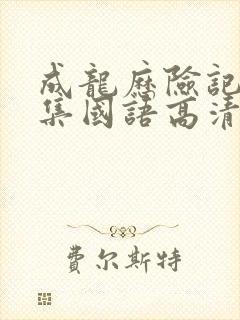 成龍歷險記
集國語高清
费尔斯特